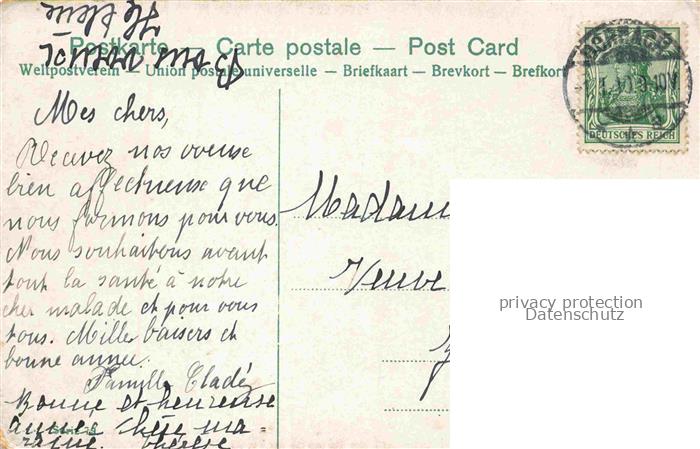 Postkarte — Carte postale — Post Card
Weltpostverein — Union postale universelle — Briefkaart — Brevkort — Brefkort
DEUTSCHES REICH
Mes chers,
Recevez nos voeuse
bien affectueuse que
nous formons pour vous.
Nous souhaitons avant
tout la santé à notre
cher malade et pour vous
tous. Mille baisers et
bonne année.
Famille
Bonne et heureuse
année chère ma-
raine. Thérèse
Madame
Veuve
privacy protection
Datenschutz